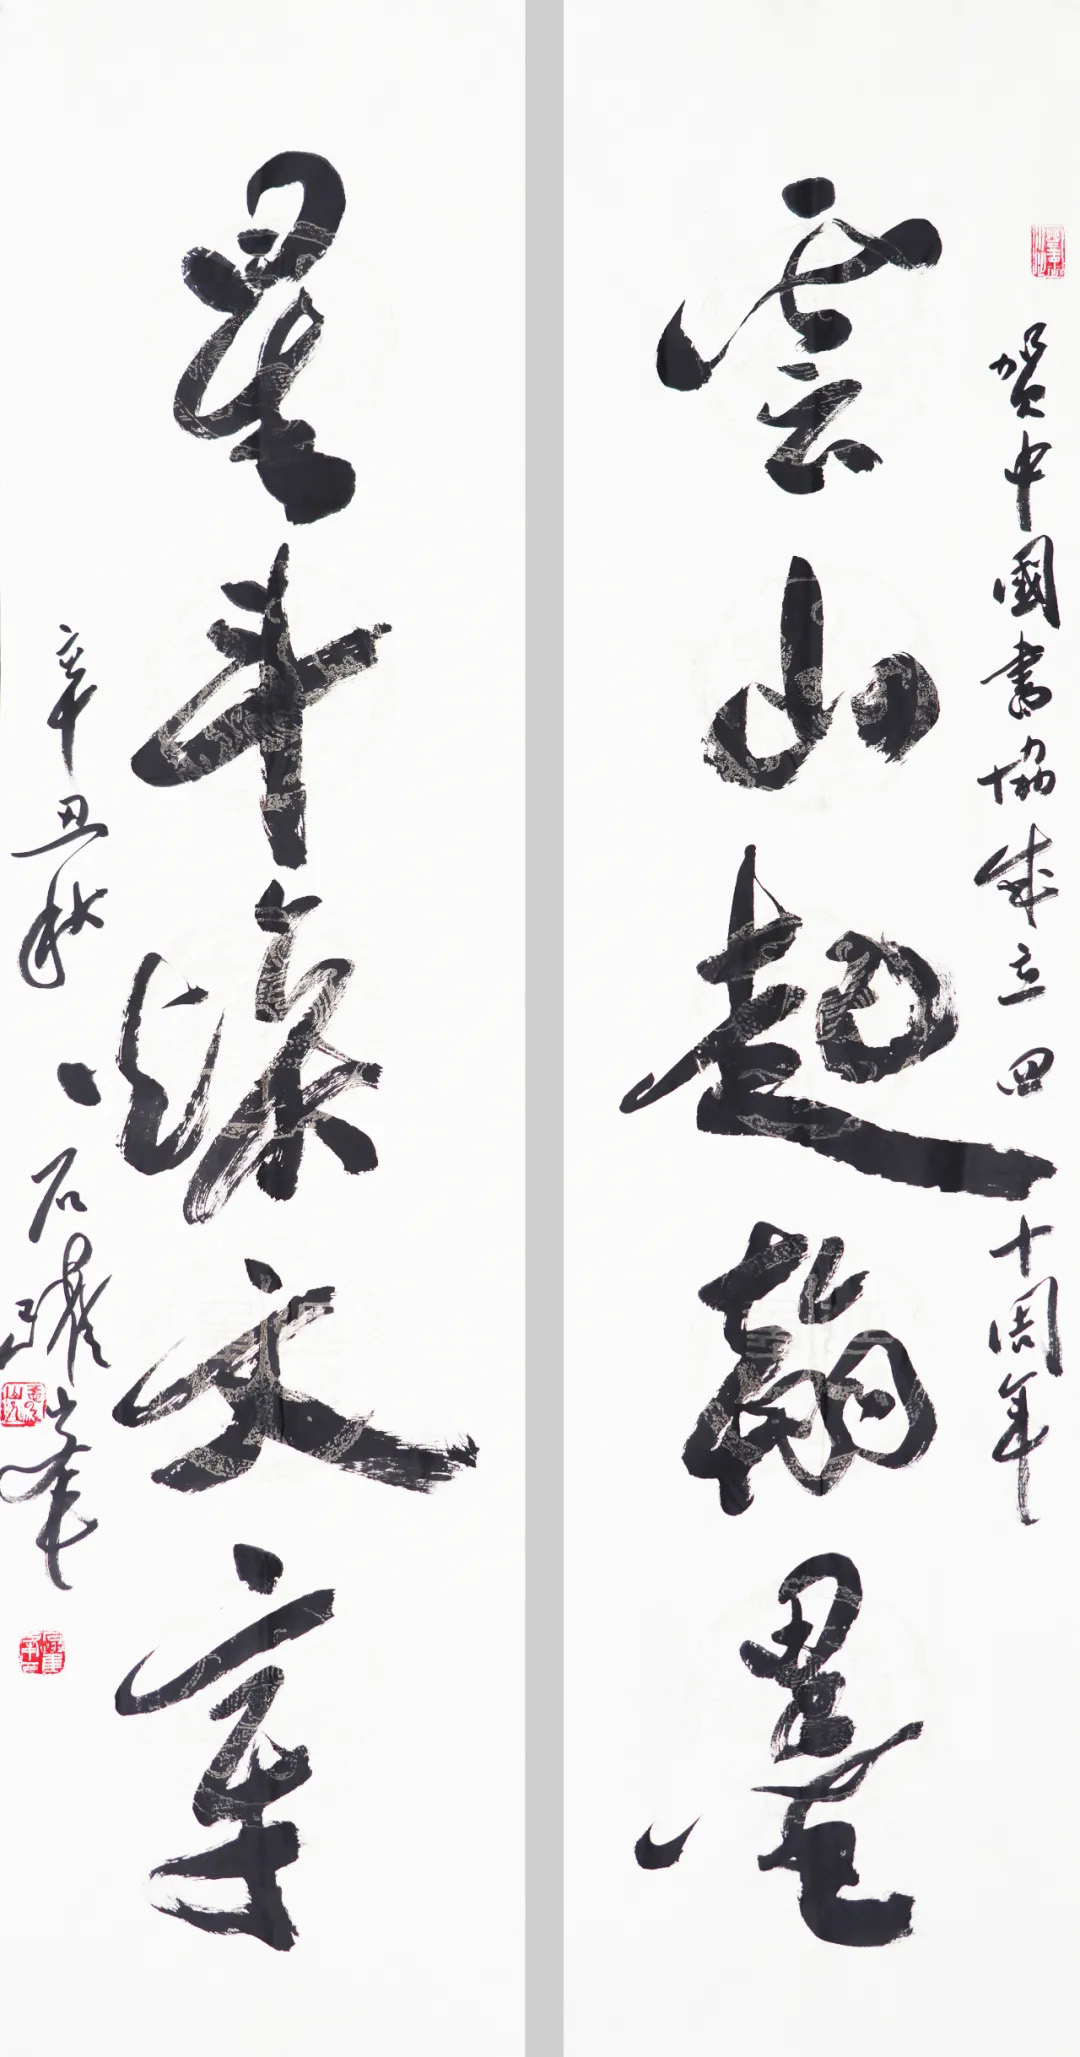 賀中國書協成立四十周年
雲山起翰墨
星斗煥文章
辛丑秋 石躍峯